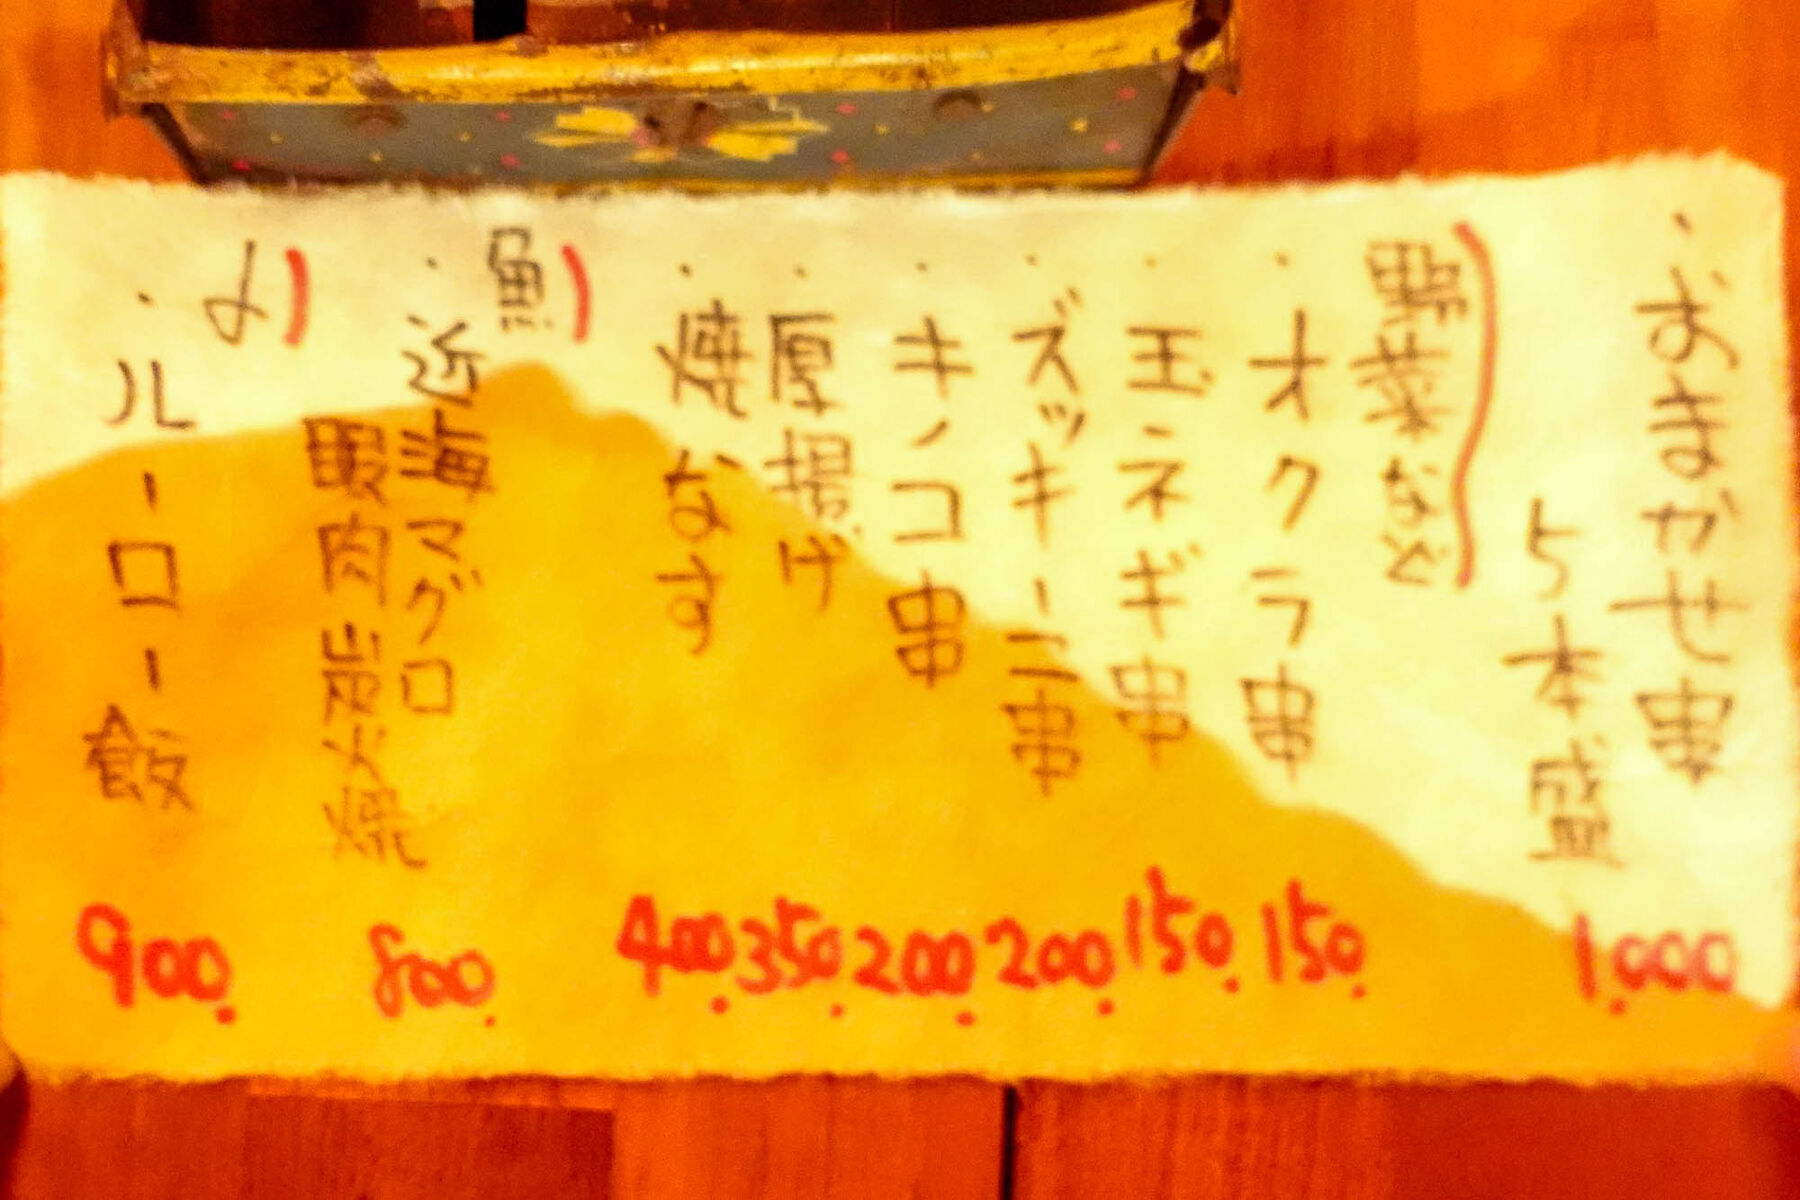 ・おまかせ串
5本盛
1,000
野菜など
・オクラ串
150.
・玉ネギ串
150.
・ズッキーニ串
200.
・キノコ串
200.
・厚揚げ
350.
・焼なす
400.
魚
・近海マグロ
暇肉炭火焼
800.
〆
・ルーロー飯
900.